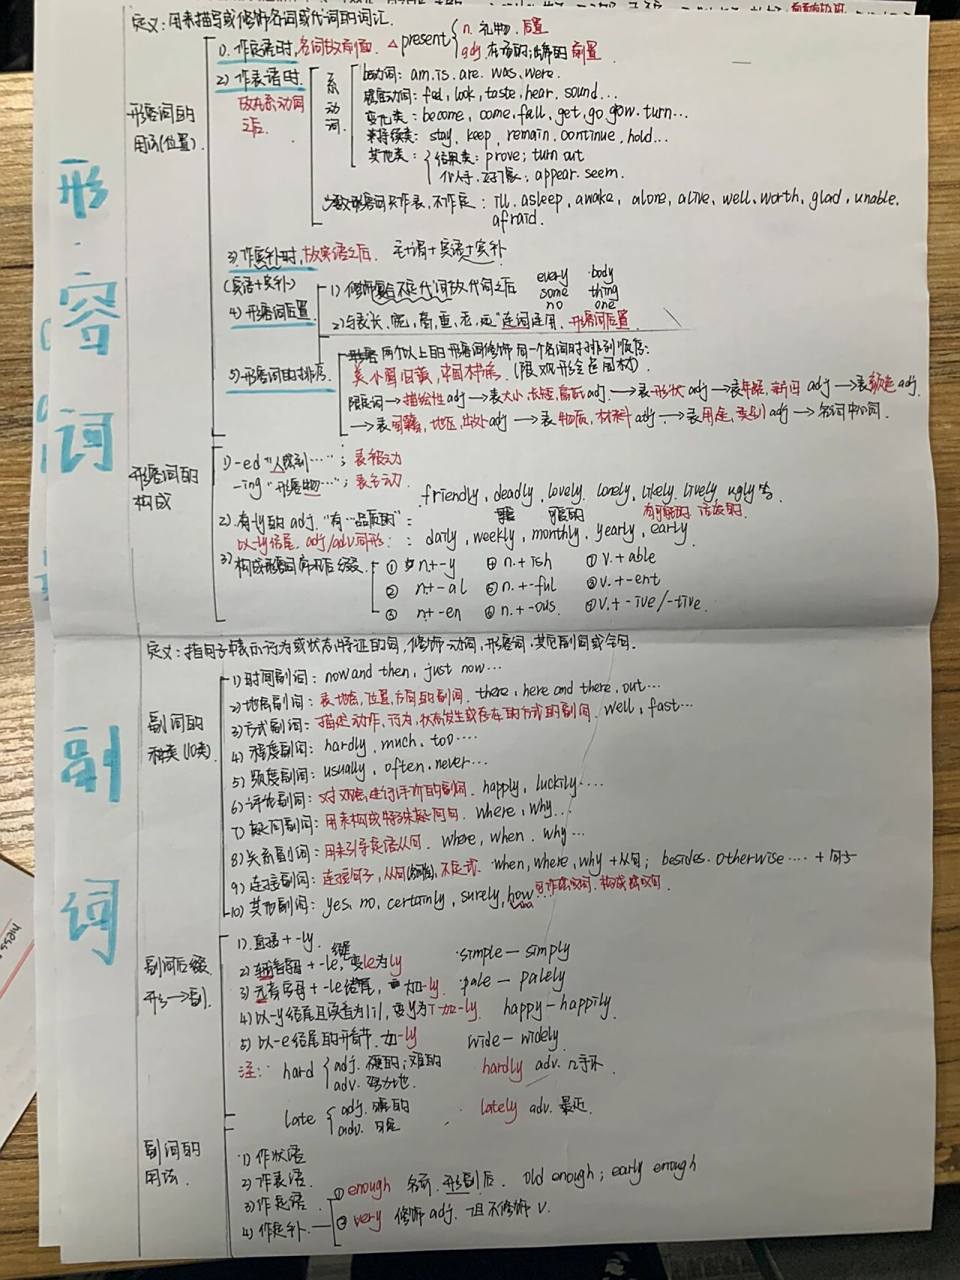 定义：用来描写或修饰名词或代词的词汇.
形容词
形容词的
用法(位置).
1). 作定语时, 名词放前面. △present
n. 礼物. 后置
adj. 在场的; 出席的 前置
2) 作表语时.
放在系动词
之后.
系动词
be动词: am. is. are. was. were.
感官动词: feel, look, taste. hear. sound...
变化类: become, come. fall, get, go. grow. turn...
持续类: stay, keep, remain. continue, hold...
其他类:
结果类: prove; turn out
appear. seem.
形容词只作表, 不作定: ill. asleep, awake, alone, alive, well. worth, glad, unable,
afraid.
3) 作宾补时, 放宾语之后.
(宾语+宾补)
4) 形容词后置
1) 修饰复合不定代词放代词之后
every body
some thing
no one
形容词后置
5) 形容词的排序.
两个以上的形容词修饰同一个名词时排列顺序:
美小圆旧黄, 中国木书房.
限定词→描绘性adj→表大小, 长短, 高低adj.→表形状adj→表年龄, 新旧adj→表颜色adj.
→表国籍, 地区, 出处adj→表物质, 材料adj.→表用途, 类别adj→名词中心词.
形容词的
构成
1) -ed "人感到..."; 表被动
-ing "形容物..."; 表主动
2). 有-ly的adj. "有...品质的": friendly, deadly, lovely. lonely, likely. lively, ugly等.
有可能的 活泼的
以-ly结尾. adj/adv同形: daily, weekly, monthly, yearly, early
3) 构成形容词常用后缀.
n+-y n.+ish v.+able
n+-al n.+-ful v.+-ent
n+-en n.+-ous. v.+-ive/-tive.
副词
定义: 指句子中表示行为或状态特征的词, 修饰动词, 形容词, 其它副词或全句.
副词的
种类(10类).
1) 时间副词: now and then, just now...
2) 地点副词: 表地点, 位置, 方向的副词. there, here and there, out...
3) 方式副词: 描述动作、行为, 状态发生或存在的方式的副词. well, fast...
4) 程度副词: hardly, much, too....
5) 频度副词: usually, often. never...
6) 评论副词: happy, luckily....
7) 疑问副词: 用来构成特殊疑问句. where, why...
8) 关系副词: 用来引导定语从句. where, when. why...
9) 连接副词: 连接句子, 从句, 不定式. when, where, why +从句; besides. otherwise.... + 句子
10) 其他副词: yes, no, certainly, surely, how...
副词后缀
形→副.
1). 直接+-ly.
2) 辅音字母+-le, 变le为ly simple — simply
3) 元音字母+-le结尾, 加-ly. pale — palely
4) 以-y结尾且读音为/i/, 变y为i加-ly. happy — happily
5) 以-e结尾的开音节, 加-ly wide — widely
注: hard
adj. 硬的; 难的
adv. 努力地.
hardly adv. 几乎不.
late
adj. 晚的
adv.
lately adv. 最近.
副词的
用法.
1) 作状语
2) 作表语.
3) 作定语
4) 作宾补.
① enough 名前. 形副后. old enough; early enough
② very 修饰adj. 但不修饰v.